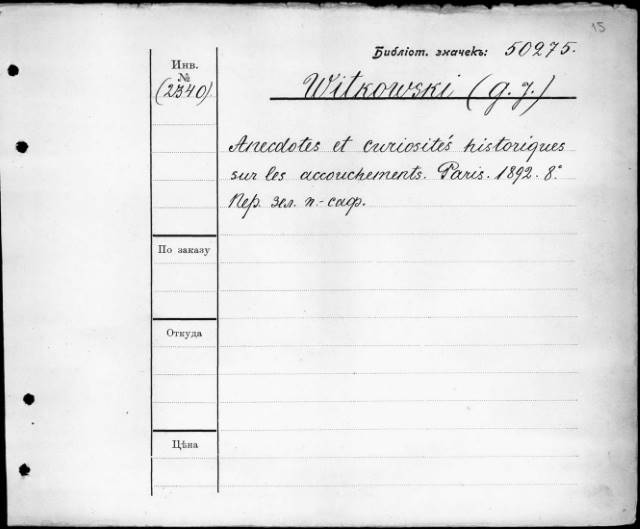 15
Библіот. значекъ: 50275.
Инв.
№
(2340)
Witkowski (G. J.)
Anecdotes et curiosités historiques
sur les accouchements. Paris. 1892. 8°
Пер. зел. п.-саф.
По заказу
Откуда
Цѣна